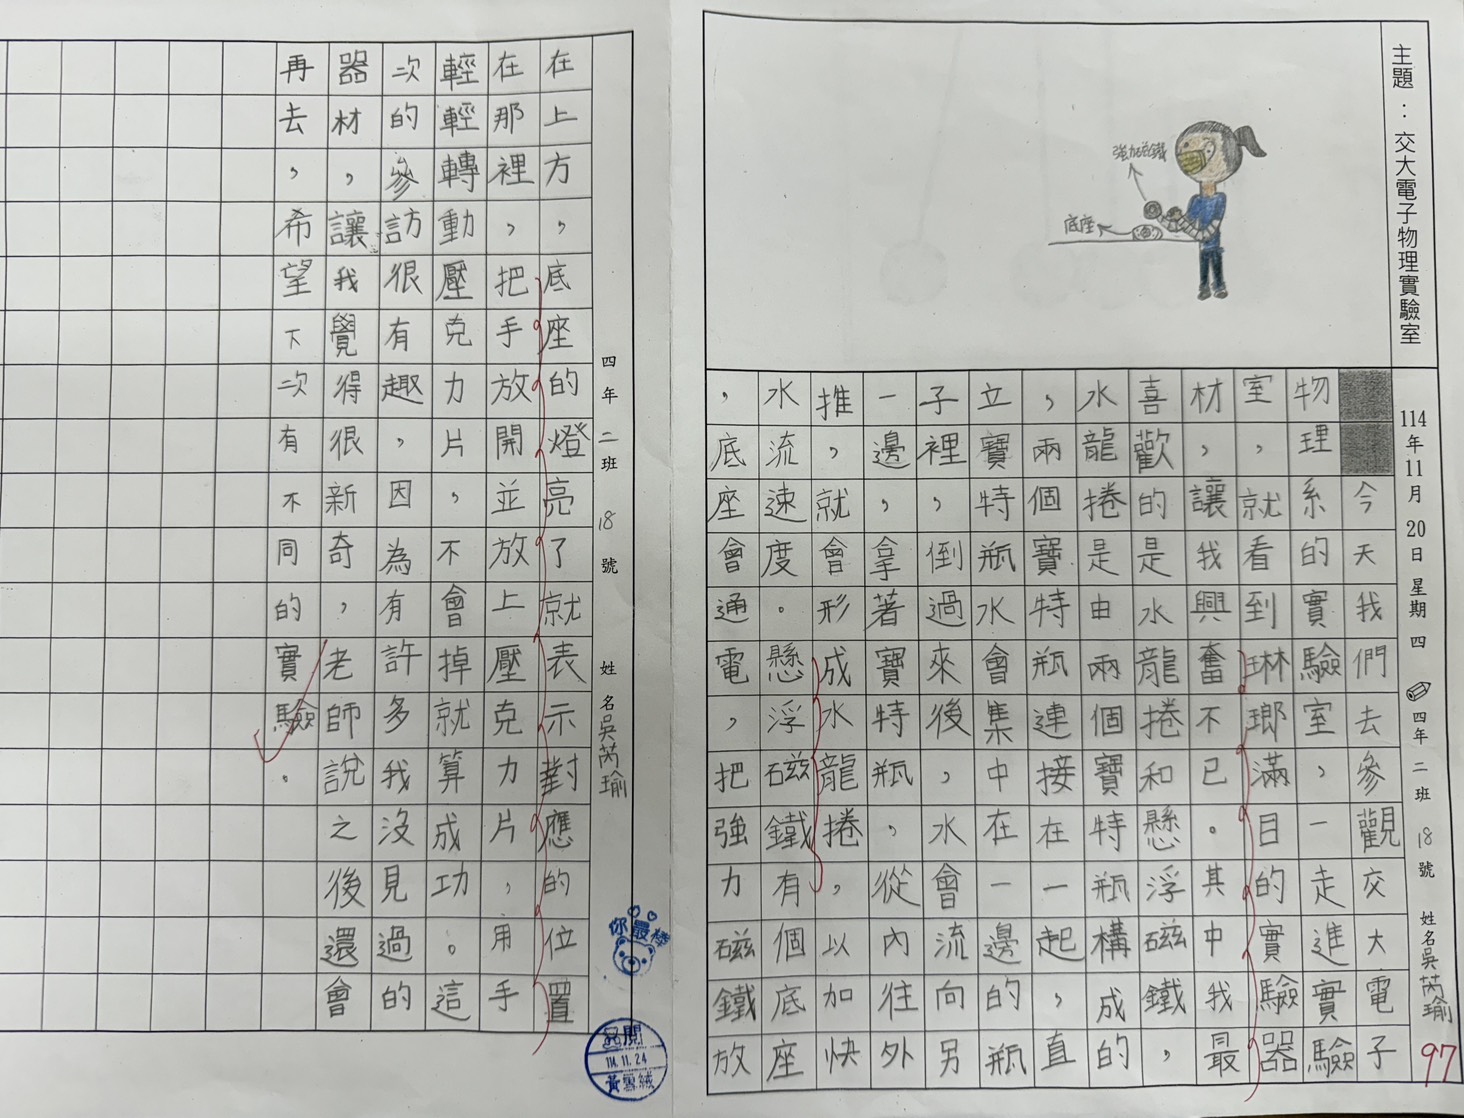 主題：交大電子物理實驗室
強力磁鐵
底座
114年11月20日星期四 四年二班18號 姓名吳芮瑜
97
今天我們去參觀交大電子
物理系的實驗室，一走進實驗
室，就看到琳瑯滿目的實驗器
材，讓我興奮不已。其中我最
喜歡的是水龍捲和懸浮磁鐵，
水龍捲是由兩個寶特瓶構成的
，兩個寶特瓶連接在一起，直
立寶特瓶水會集中在一邊的瓶
子裡，倒過來後，水會流向另
一邊，拿著寶特瓶，從內往外
推，就會形成水龍捲，以加快
水流速度。懸浮磁鐵有個底座
，底座會通電，把強力磁鐵放
四年二班18號 姓名吳芮瑜
你最棒
閱
114.11.24
在上方，底座的燈亮了就表示對應的位置
在那裡，把手放開並放上壓克力片，用手
輕輕轉動壓克力片，不會掉就算成功。這
次的參訪很有趣，因為有許多我沒見過的
器材，讓我覺得很新奇，老師說之後還會
再去，希望下次有不同的實驗。